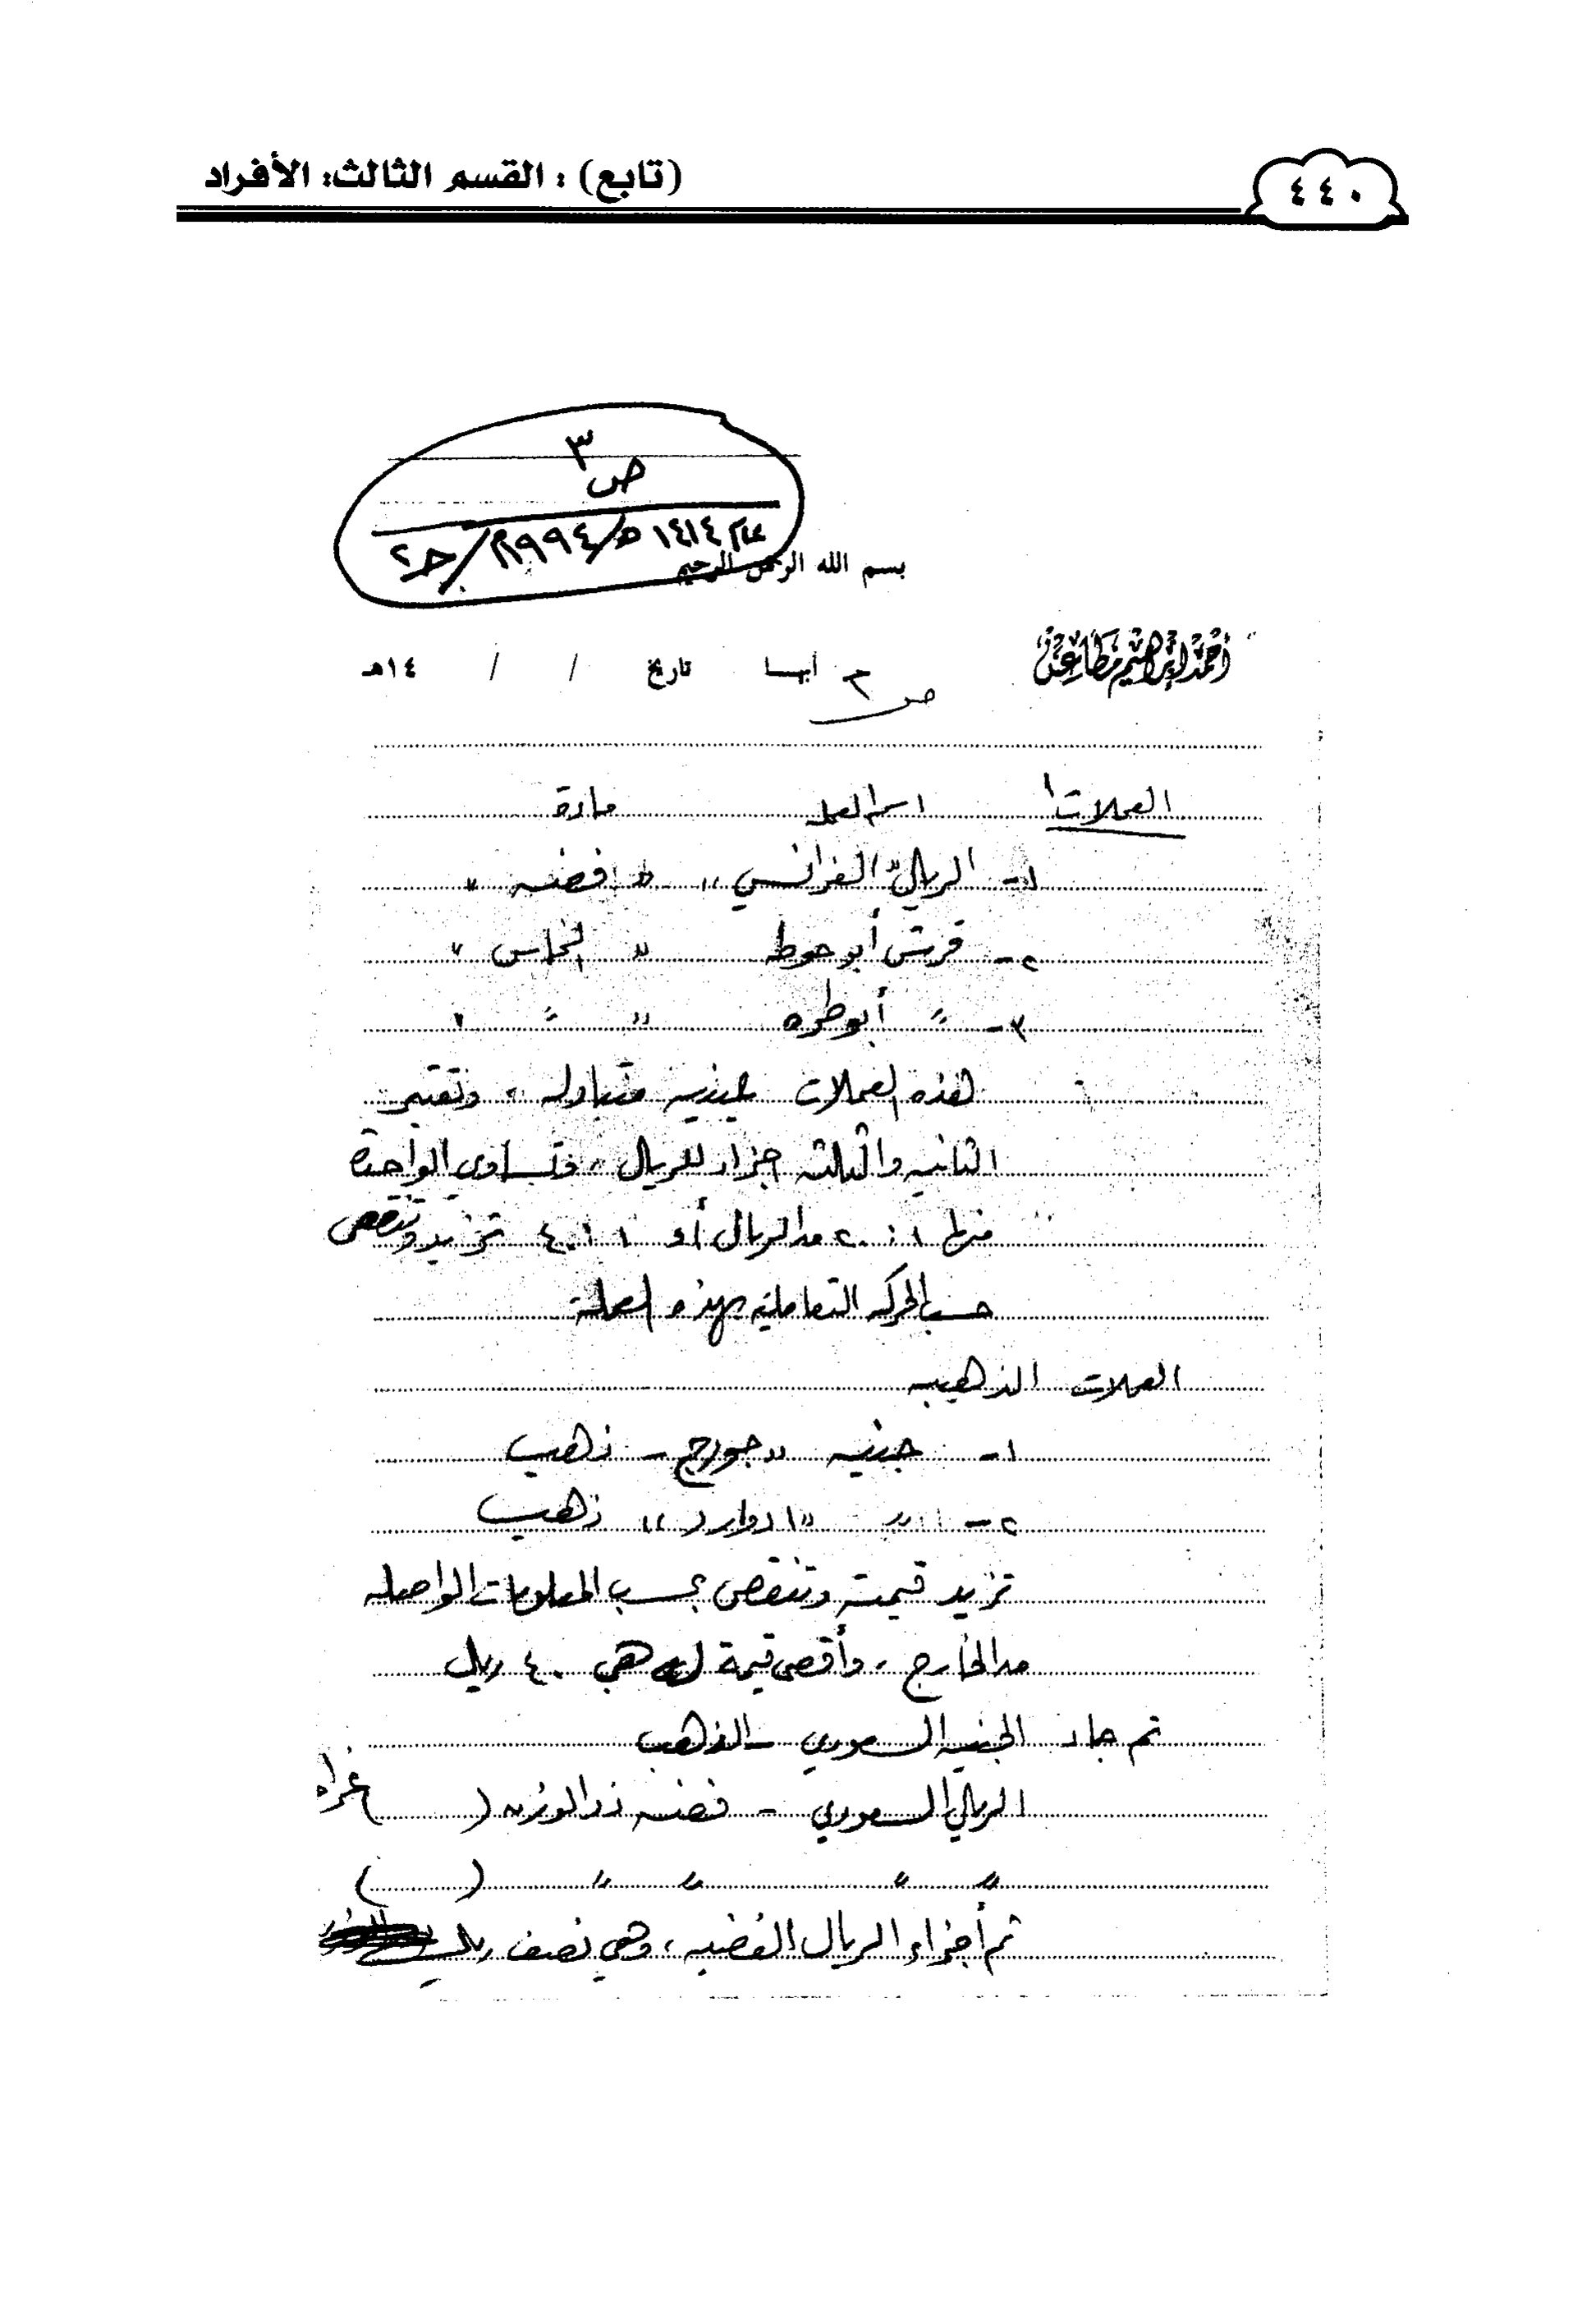 ٤٤٠
(تابع) : القسم الثالث: الأفراد
٣
ص
١٤١٤هـ/١٩٩٤م/جـ٢
بسم الله الرحمن الرحيم
أحمد إبراهيم مطاعن
أبها تاريخ / / ١٤هـ
ص ٣
العملات اسم العمله مادة
١- الريال "الفرانسي" " فضه "
٢- قرش أبو حوطه " النحاس "
٣- " أبو طره " " "
هذه العملات متداوله، وتعتبر
الثانيه والثالثه اجزاء للريال، وتساوي الواحدة
منها ١ : ٢٠ من الريال أو ١ : ٤٠ تزيد وتنقص
حسب الحركه التعامليه بهذه العملة
العملات الذهبيه
١- جنيه "جورج - ذهب
٢- " "ادوارد" ذهب
تزيد قيمته وتنقص بحسب المعلومات الواصله
من الخارج، وأقصى قيمة له هي ٤٠ ريال
ثم جاء الجنيه السعودي - الذهب
الريال السعودي - فضه ذو الوزن ( ) غرام
" " " " ( )
ثم أجزاء الريال الفضيه، وهي نصف ريال